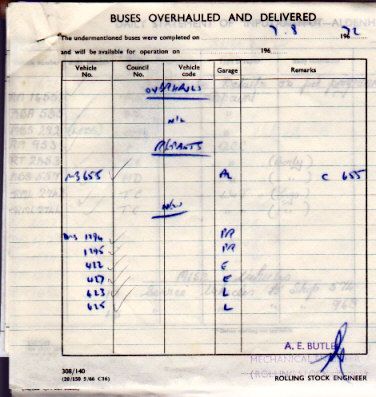 BUSES OVERHAULED AND DELIVERED
The undermentioned buses were completed on 7.8 1972
and will be available for operation on 196
Vehicle No. Council No. Vehicle code Garage Remarks
OVERHAULS
NIL
REPAINTS
MS 655 AL C 655
NEW
DMS 1294 PR
1295 PR
422 E
427 E
623 L
625 L
A. E. BUTLER
MECHANICAL
ROLLING STOCK ENGINEER
308/140
(20/150 5/66 C36)